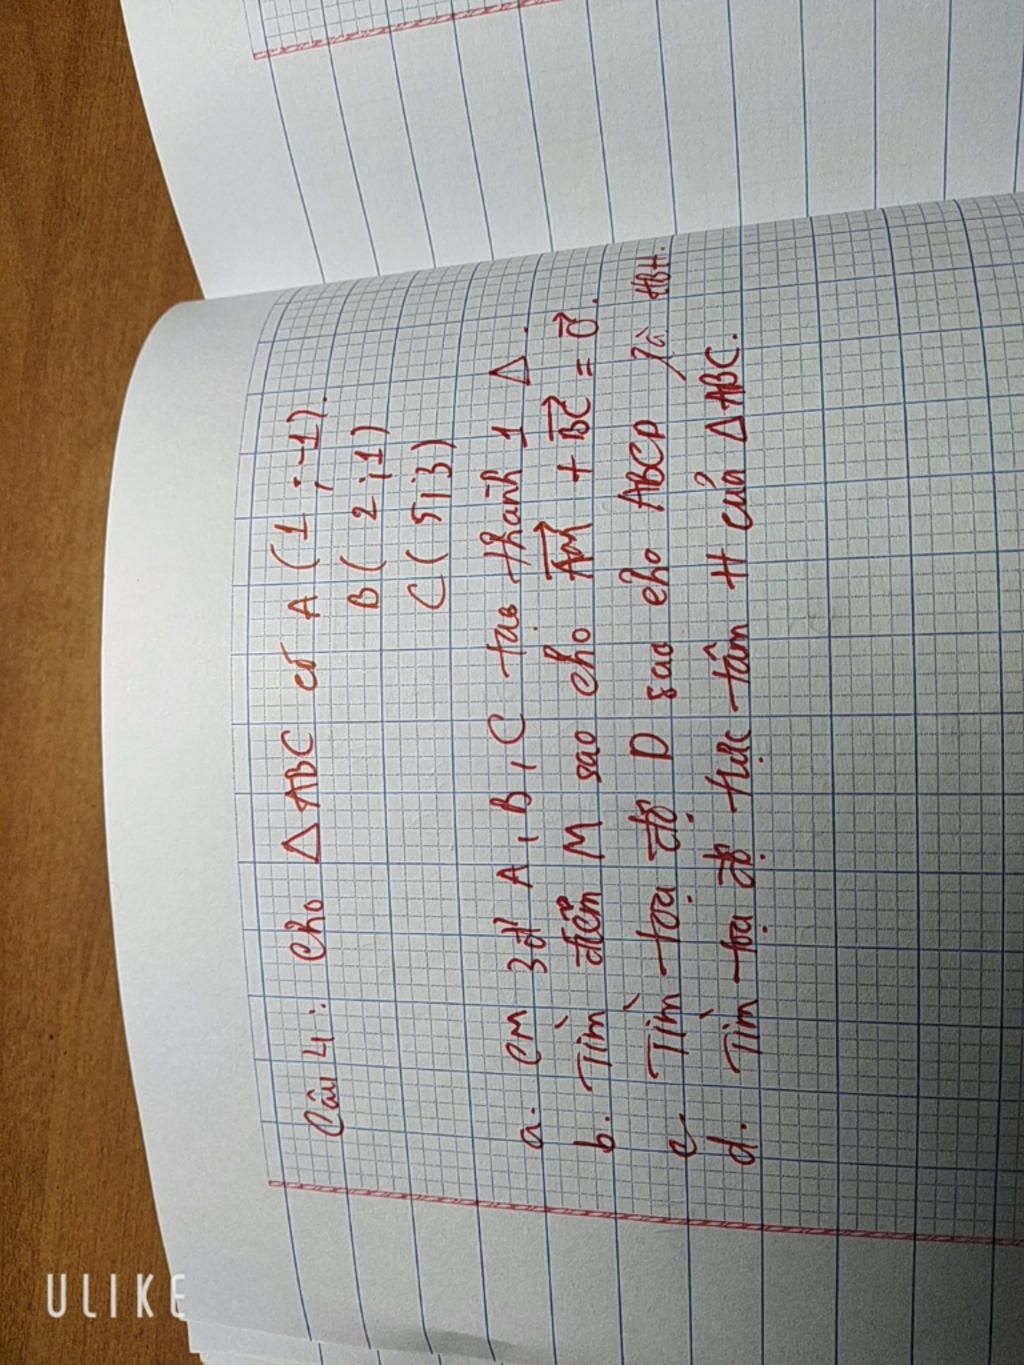 Câu 4: Cho △ABC có A(1;-1).
B(2;1)
C(5;3)
a. CM 3đ' A, B, C tạo thành 1 △.
b. Tìm điểm M sao cho \overrightarrow{AM} + \overrightarrow{BC} = \overrightarrow{O}.
c. Tìm toạ độ D sao cho ABCD là HBH.
d. Tìm toạ độ trực tâm H của △ABC.
ULIKE